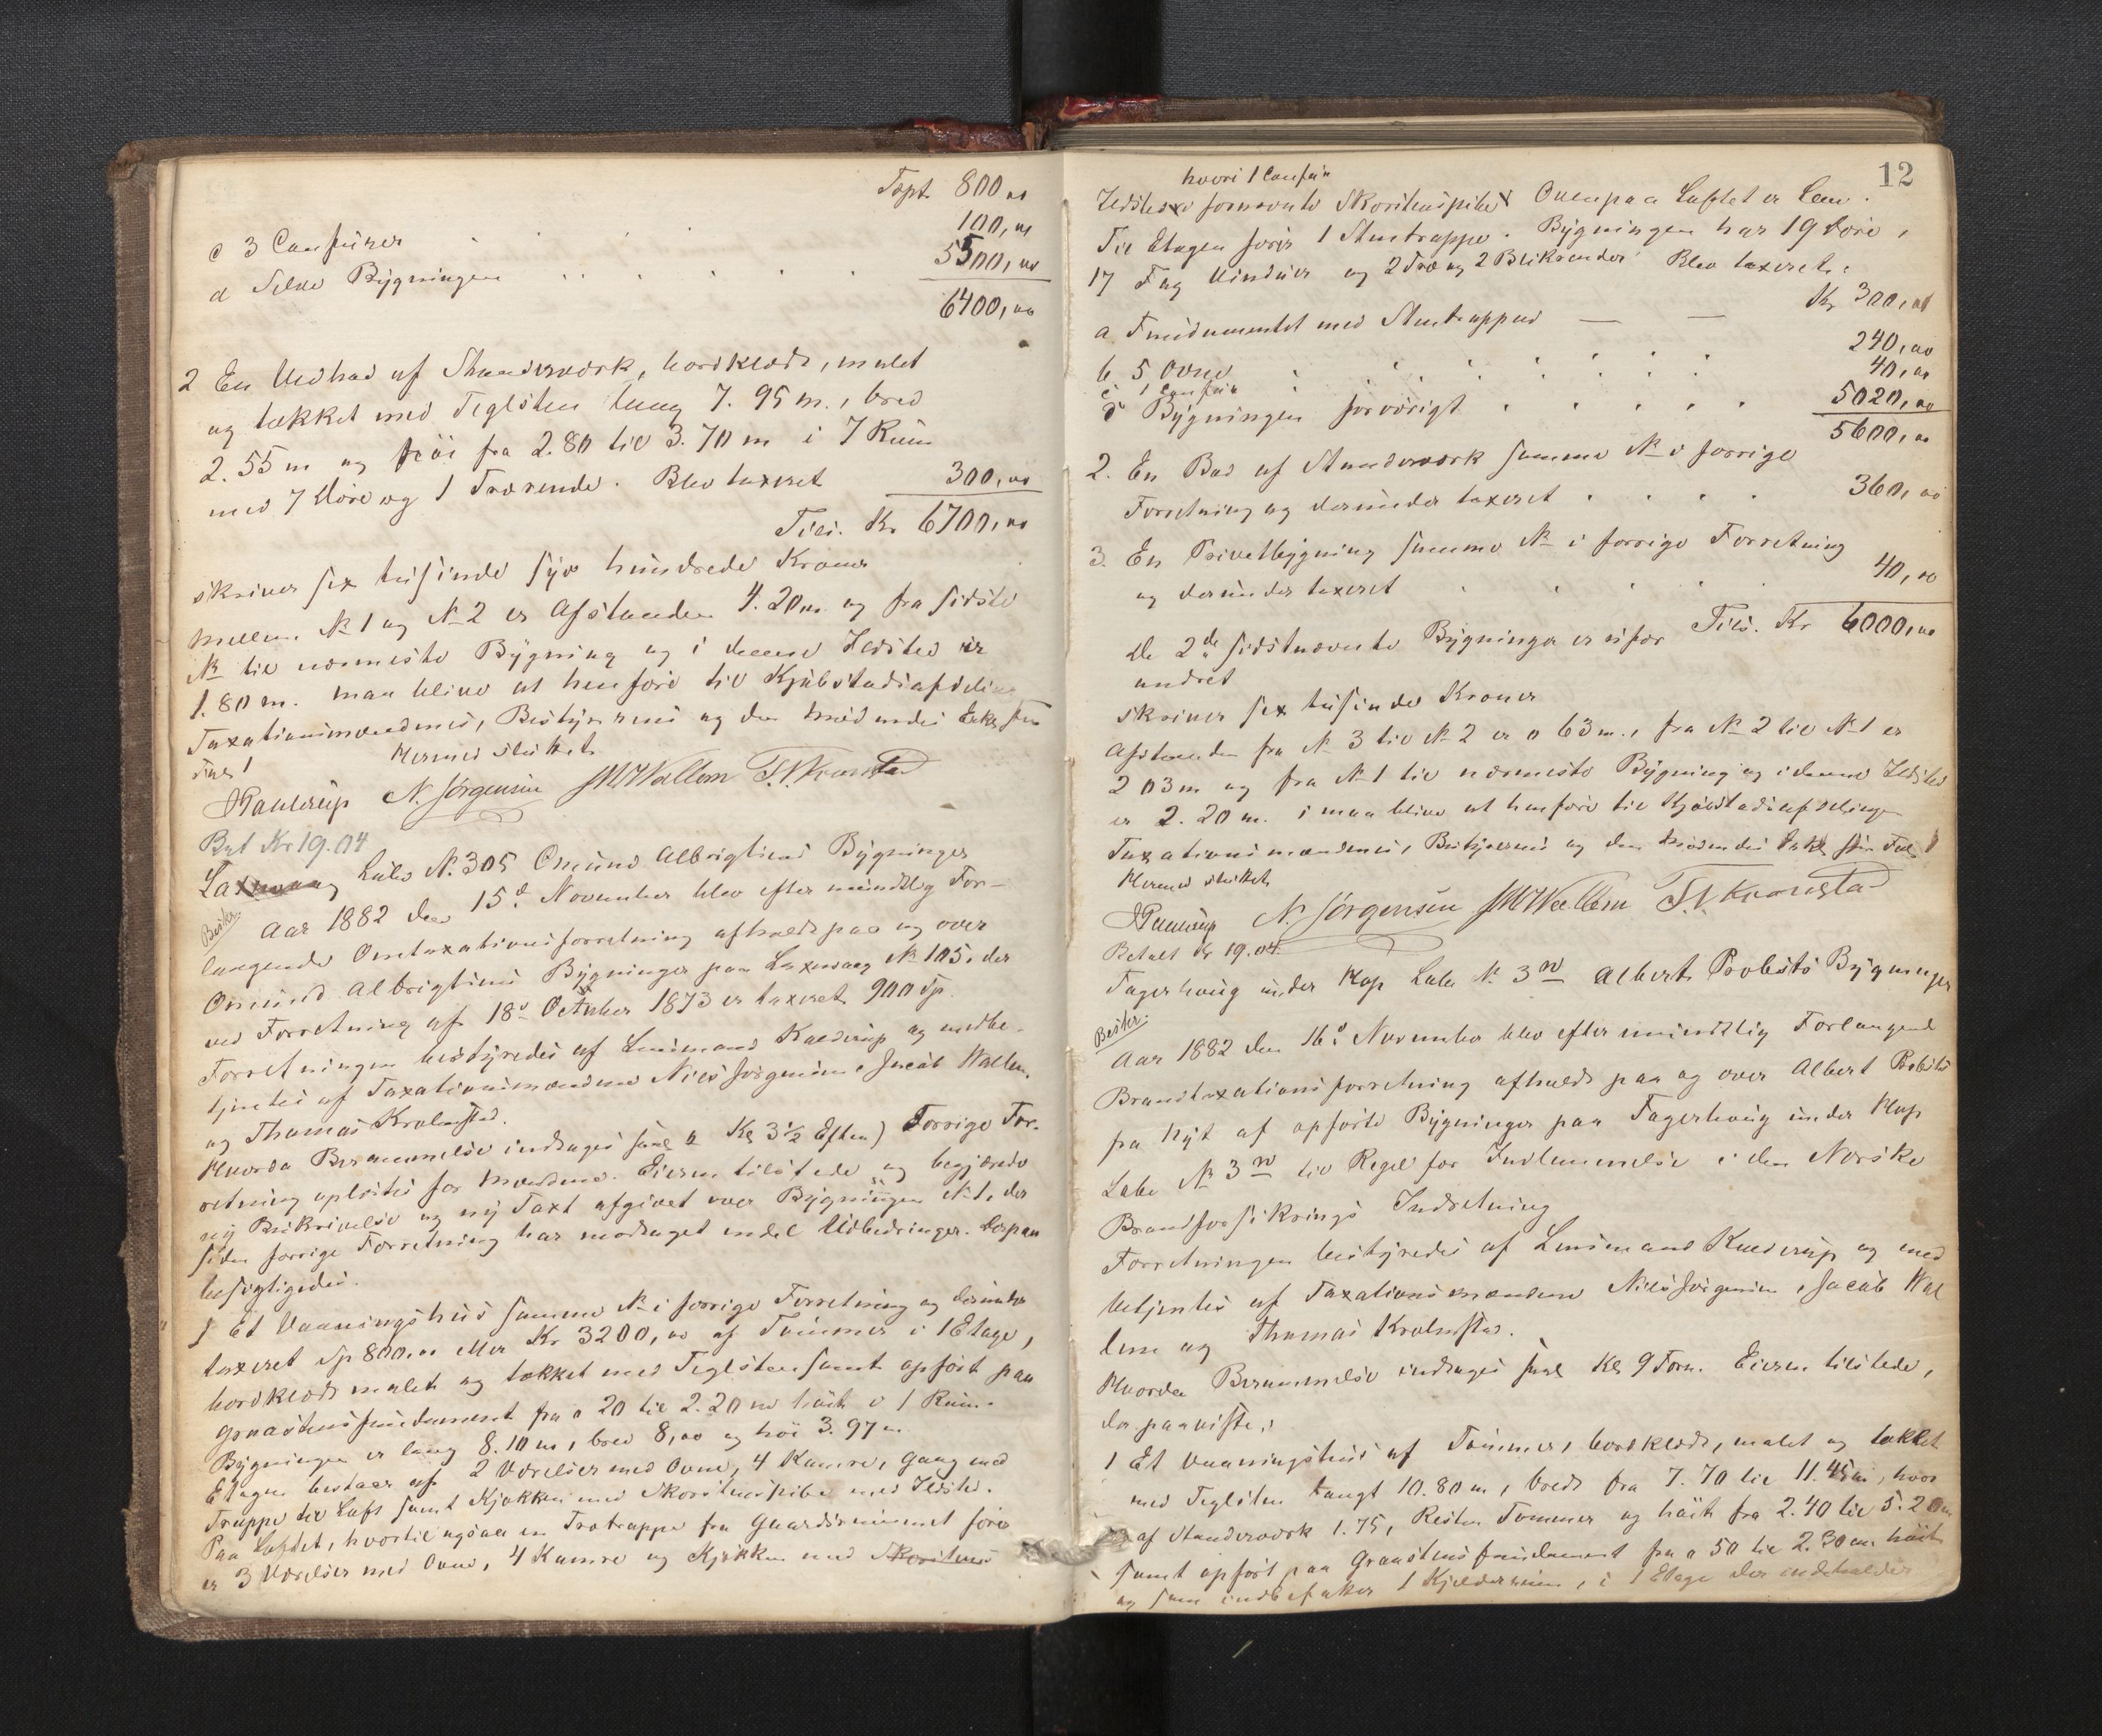 Tspt. 800,00
c 3 Comfurer 100,00
d Selve Bygningen 5500,00
6400,00
2 En Vedbod af Standerværk, bordklædt, malet
og tækket med Teglsten lang 7.95 m., bred
2.55 m og höi fra 2.80 til 3.70 m i 7 Rum
med 7 Döre og 1 Trærende. Blev taxeret 300,00
Tils. Kr 6700,00
skriver sex tusinde syv hundrede Kroner
Mellem № 1 og № 2 er Afstanden 4.20 m og fra sidste
№ til nærmeste Bygning og i denne Ildsted er
1.80 m. maa blive at henföre til Kjöbstadsafdeling
Taxationsmændenes, Bestyrerens og den mödendes
Hermed sluttet
Kaulerup N. Jörgensen Wallem T. N. Kronstad
Bet Kr 19.04
Laxevaag Labr № 305 Omund Albrigtsens Bygninger
Aar 1882 den 15d November blev efter mundtlig For-
langende Omtaxationsforretning afholdt paa og over
Omund Albrigtsens Bygninger paa Laxevaag № 105, der
ved Forretning af 18d October 1873 er taxeret 900 Sp.
Forretningen bestyredes af Lensmand Kaulerup og medbe-
tjentes af Taxationsmændene Niels Jörgensen, Jacob Wallem
og Thomas Kronstad.
Hvorda Berammelse indtages Kl 3½ Efterm) Forrige For-
retning oplæstes for Mændene. Eieren tilstede og begjærede
ny Beskrivelse og ny Taxt afgivet over Bygningen № 1, der
siden forrige Forretning har modtaget endel Udbedringer. Derpaa
besigtigedes.
1 Et Vaaningshus samme № i forrige Forretning og derunder
taxeret Sp 800,00 eller Kr 3200,00 af Tømmer i 1 Etage,
bordklædt malet og tækket med Teglsten samt opfört paa
graastensfundament fra 0 20 til 2.20 m höit i 1 Rum.
Bygningen er lang 8.10 m, bred 8,00 og höi 3.97 m
Etagen bestaar af 2 Værelser med Ovne, 4 Kamre, Gang med
Trappe til Loft samt Kjökken med Skorstenspibe med Ildsted.
Paa Loftet, hvortil ogsaa en Trætrappe fra Gaardsrummet förer
er 3 Værelser med Ovne, 4 Kamre og Kjökken med Skorstens
12
hvori 1 Comfur
Ildsted i fornævnte Skorstenspibe Ovenpaa Loftet er Lem.
Til Etagen förer 1 Stentrappe. Bygningen har 19 Döre,
17 Fag Vinduer og 2 Træ og 2 Blikrender Blev taxeret:
a Fundamentet med Stentrappe Kr 300,00
b 5 Ovne 240,00
c 1 Comfur 40,00
d Bygningen forövrigt 5020,00
5600,00
2. En Bod af Standerværk samme № i forrige
Forretning og derunder taxeret 360,00
3. En Privetbygning samme № i forrige Forretning
og derunder taxeret 40,00
De 2de sidstnævnte Bygninger er ufor Tils. Kr 6000,00
andret
skriver sex tusinde Kroner
Afstanden fra № 3 til № 2 er 0 63 m., fra № 2 til № 1 er
2 03 m og fra № 1 til nærmeste Bygning og i denne Ildsted
er 2.20 m. maa blive at henföre til Kjöbstadsafdelingen
Taxationsmændenes, Bestyrerens og den mödendes
Hermed sluttet
Kaulerup N. Jörgensen Wallem T. N. Kronstad
Betalt Kr 19.04
Fagerhoug under Hop Labr № 3 Albert Probsts Bygninger
Aar 1882 den 16d November blev efter mundtlig Forlangende
Brandtaxationsforretning afholdt paa og over Albert Probsts
fra Nyt af opförte Bygninger paa Fagerhoug under Hop
Labr № 3 til Regel for Indlemmelse i den Norske
Brandforsikrings Indretning
Forretningen bestyredes af Lensmand Kaulerup og med
betjentes af Taxationsmændene Niels Jörgensen, Jacob Wal
lem og Thomas Kronstad.
Hvorda Berammelse indtages Kl 9 Form. Eieren tilstede,
der paaviste:
1 Et Vaaningshus af Tømmer, bordklædt, malet og tækket
med Teglsten langt 10.80 m, bredt fra 7.70 til 11.45 m, hvor
af Standerværk 1.75, Resten Tømmer og höit fra 2.40 til 5.20 m
samt opfört paa Graastensfundament fra 0 50 til 2.30 m höit
og som indbefatter 1 Kjelderrum, i 1 Etage der indeholder